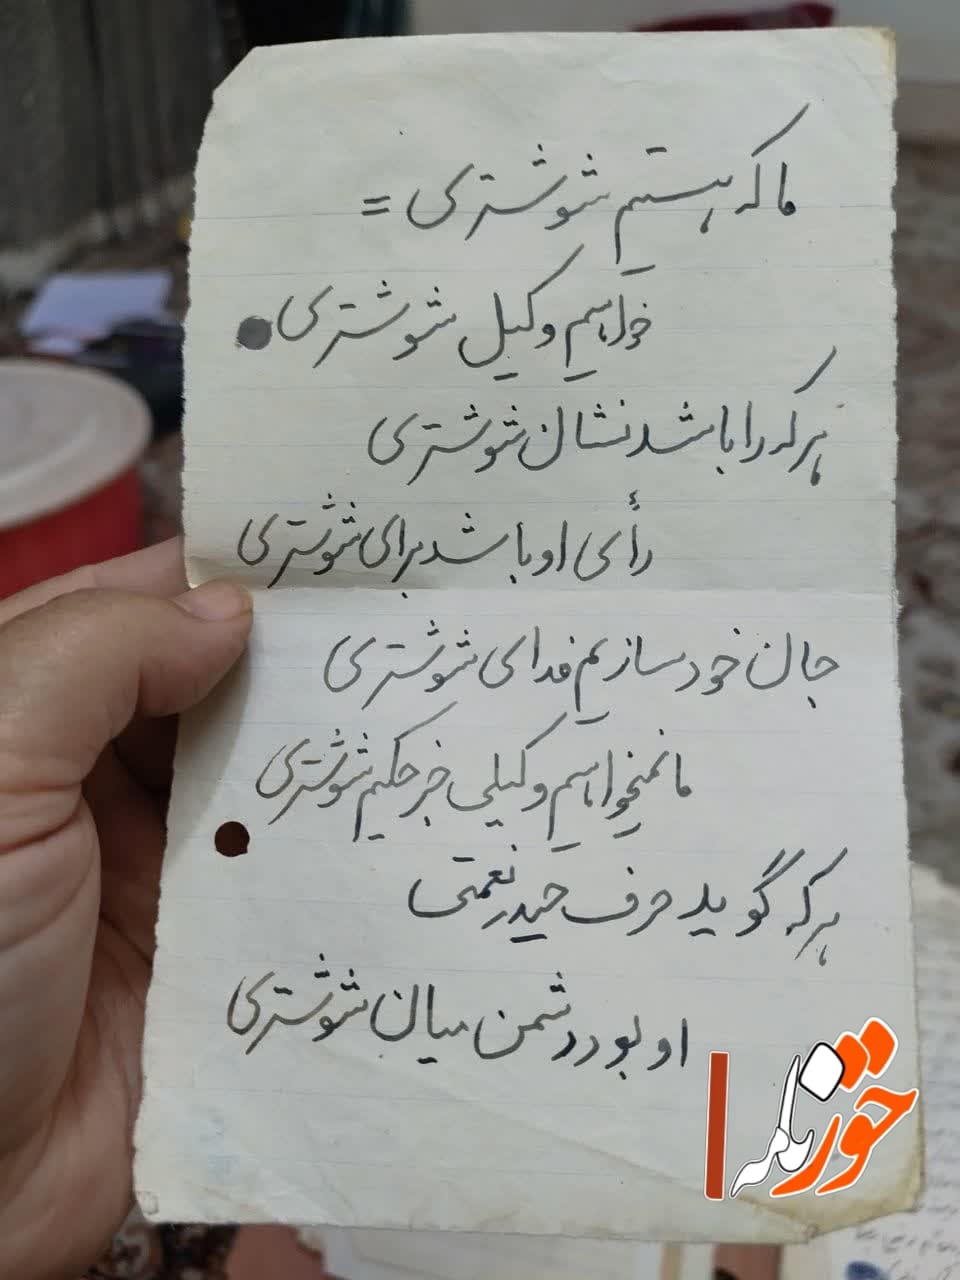 ما که هستیم شوشتری =
خواهیم وکیل شوشتری
هرکه را باشد نشان شوشتری
رأی او باشد برای شوشتری
جان خود سازیم فدای شوشتری
ما نمیخواهیم وکیلی جز حکیم شوشتری
هرکه گوید حرف حیدر نعمتی
او بود دشمن میان شوشتری
خورنامه